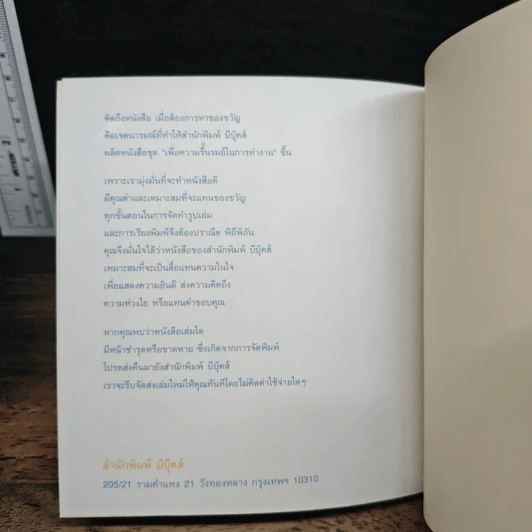 คิดถึงหนังสือ เมื่อต้องการหาของขวัญ
คือเจตนารมณ์ที่ทำให้สำนักพิมพ์ บีบุ๊คส์
ผลิตหนังสือชุด "เพื่อความรื่นรมย์ในการทำงาน" ขึ้น
เพราะเรามุ่งมั่นที่จะทำหนังสือดี
มีคุณค่าและเหมาะสมที่จะแทนของขวัญ
ทุกขั้นตอนในการจัดทำรูปเล่ม
และการเรียงพิมพ์จึงต้องปราณีต พิถีพิถัน
คุณจึงมั่นใจได้ว่าหนังสือของสำนักพิมพ์ บีบุ๊คส์
เหมาะสมที่จะเป็นสื่อแทนความในใจ
เพื่อแสดงความยินดี ส่งความคิดถึง
ความห่วงใย หรือแทนคำขอบคุณ
หากคุณพบว่าหนังสือเล่มใด
มีหน้าชำรุดหรือขาดหาย ซึ่งเกิดจากการจัดพิมพ์
โปรดส่งคืนมายังสำนักพิมพ์ บีบุ๊คส์
เราจะรีบจัดส่งเล่มใหม่ให้คุณทันทีโดยไม่คิดค่าใช้จ่ายใดๆ
สำนักพิมพ์ บีบุ๊คส์
205/21 รามคำแหง 21 วังทองหลาง กรุงเทพฯ 10310